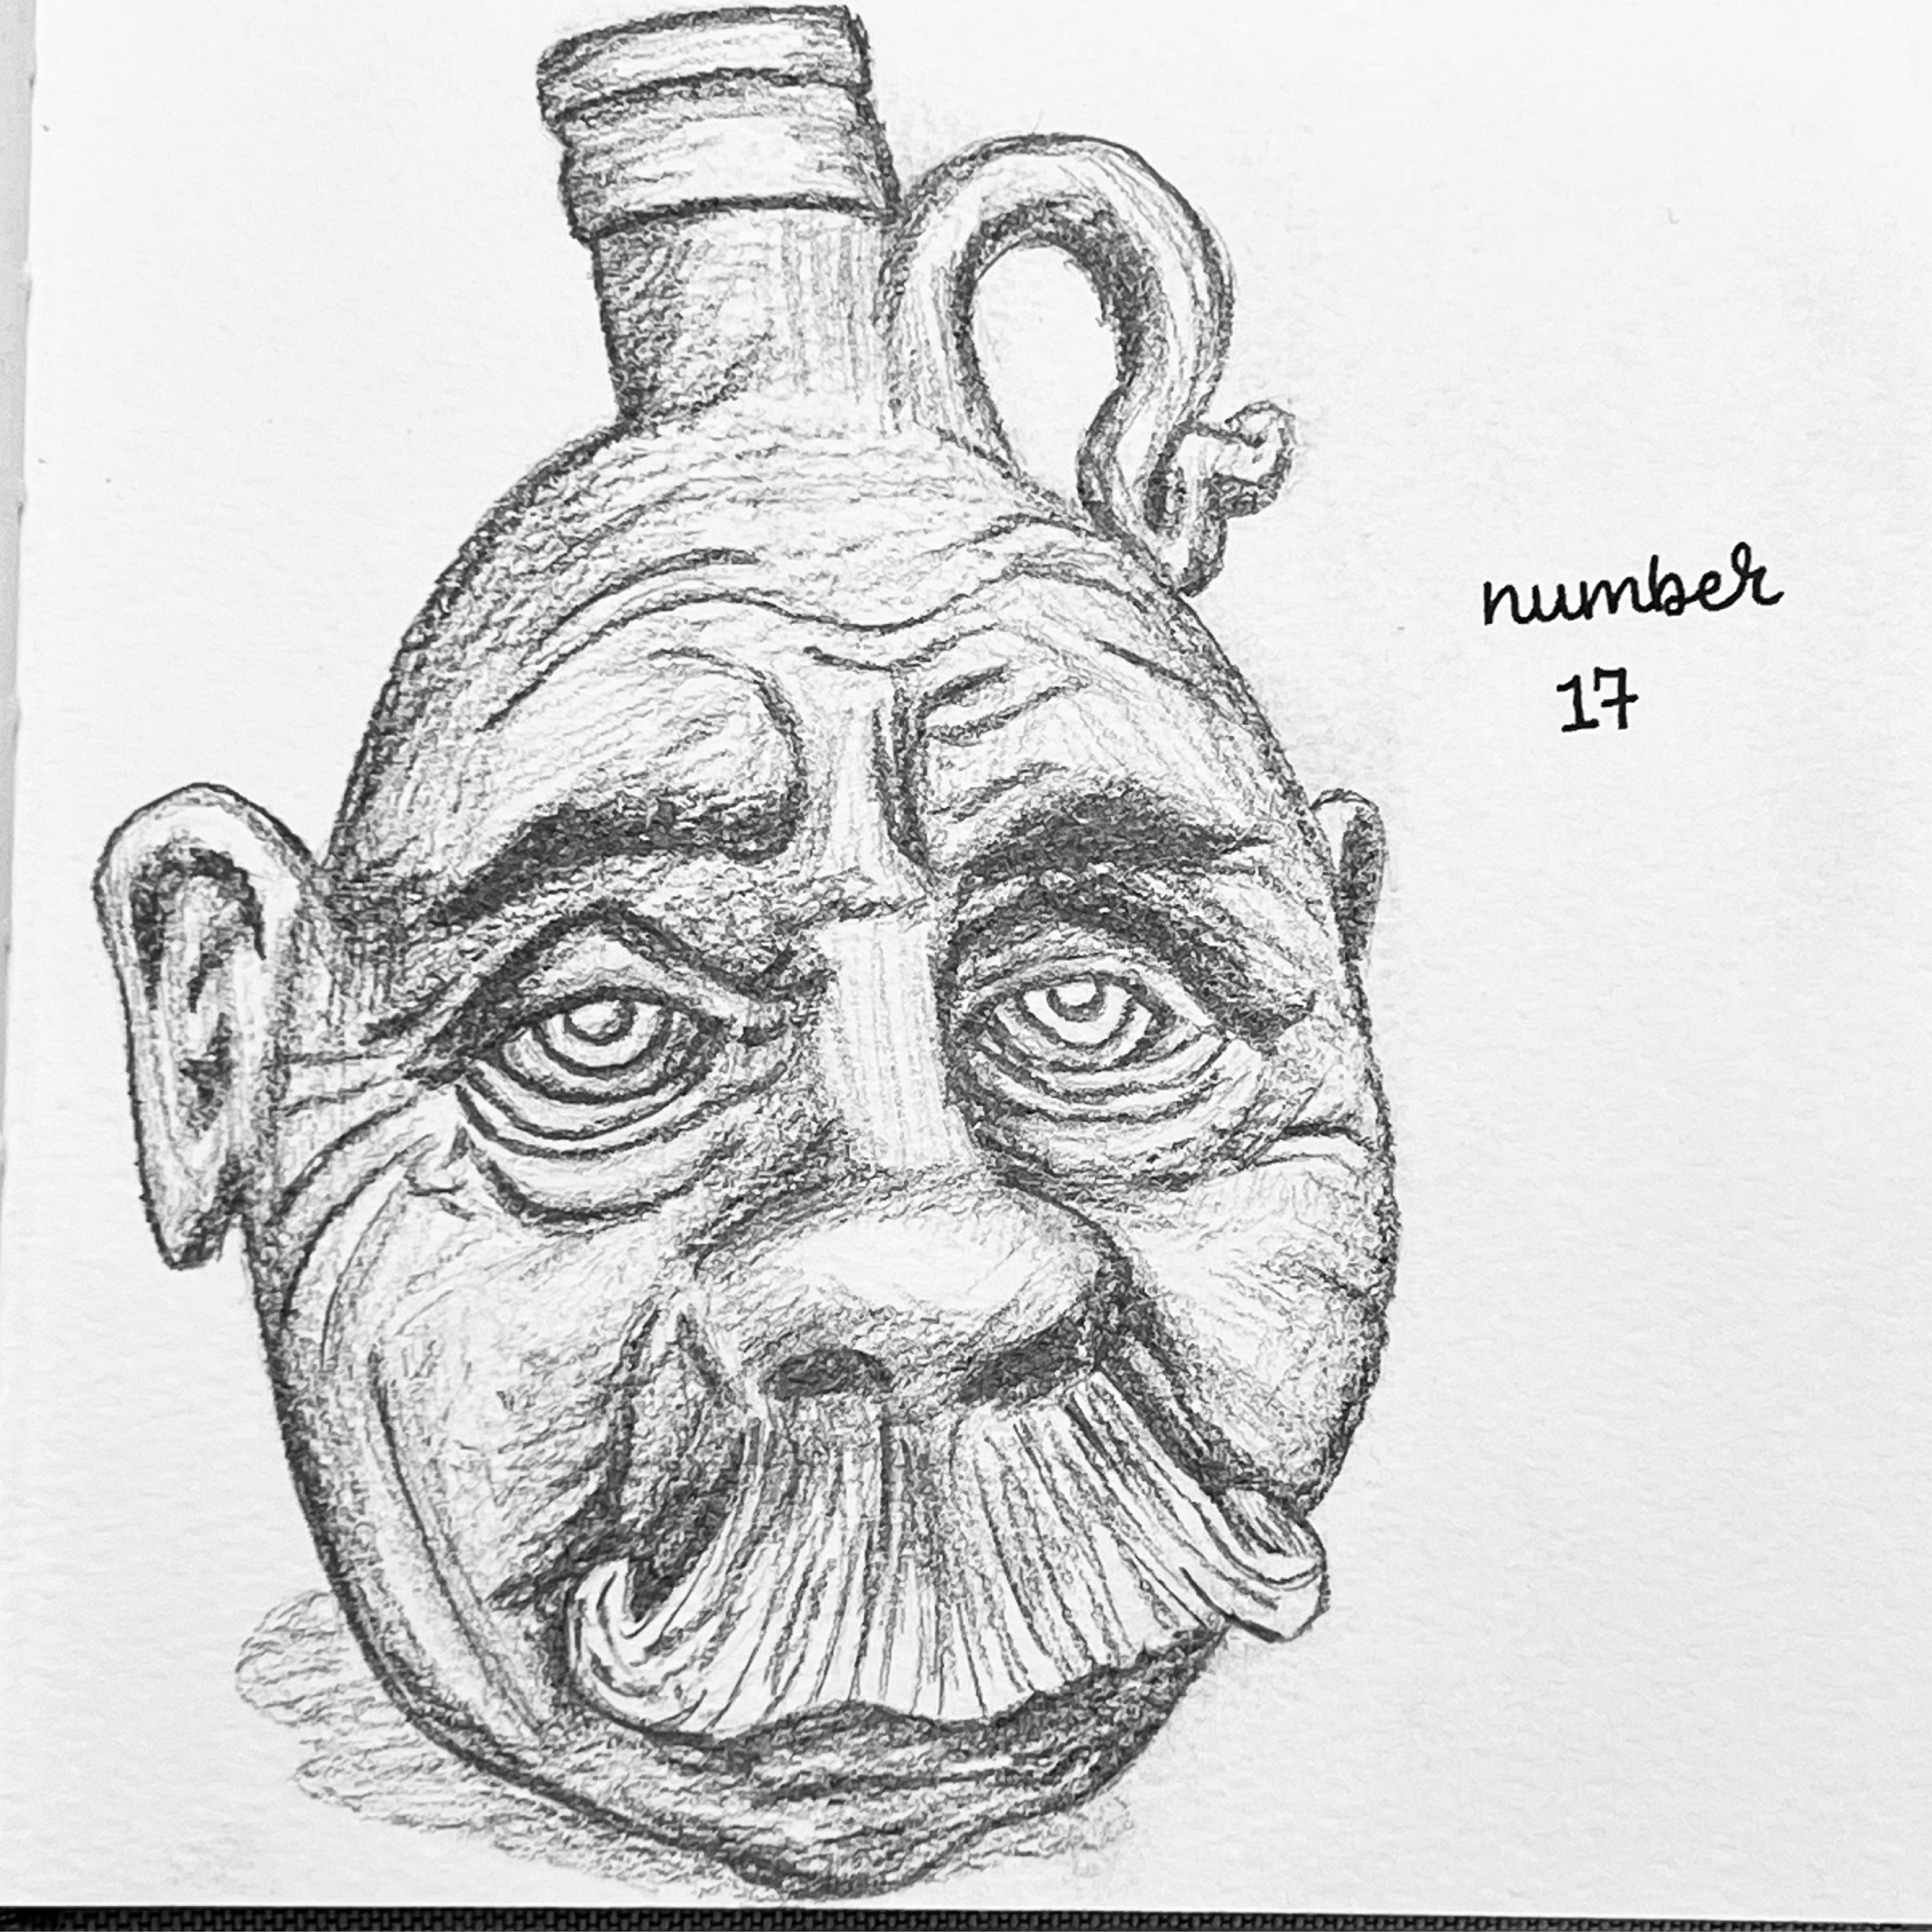 number
17